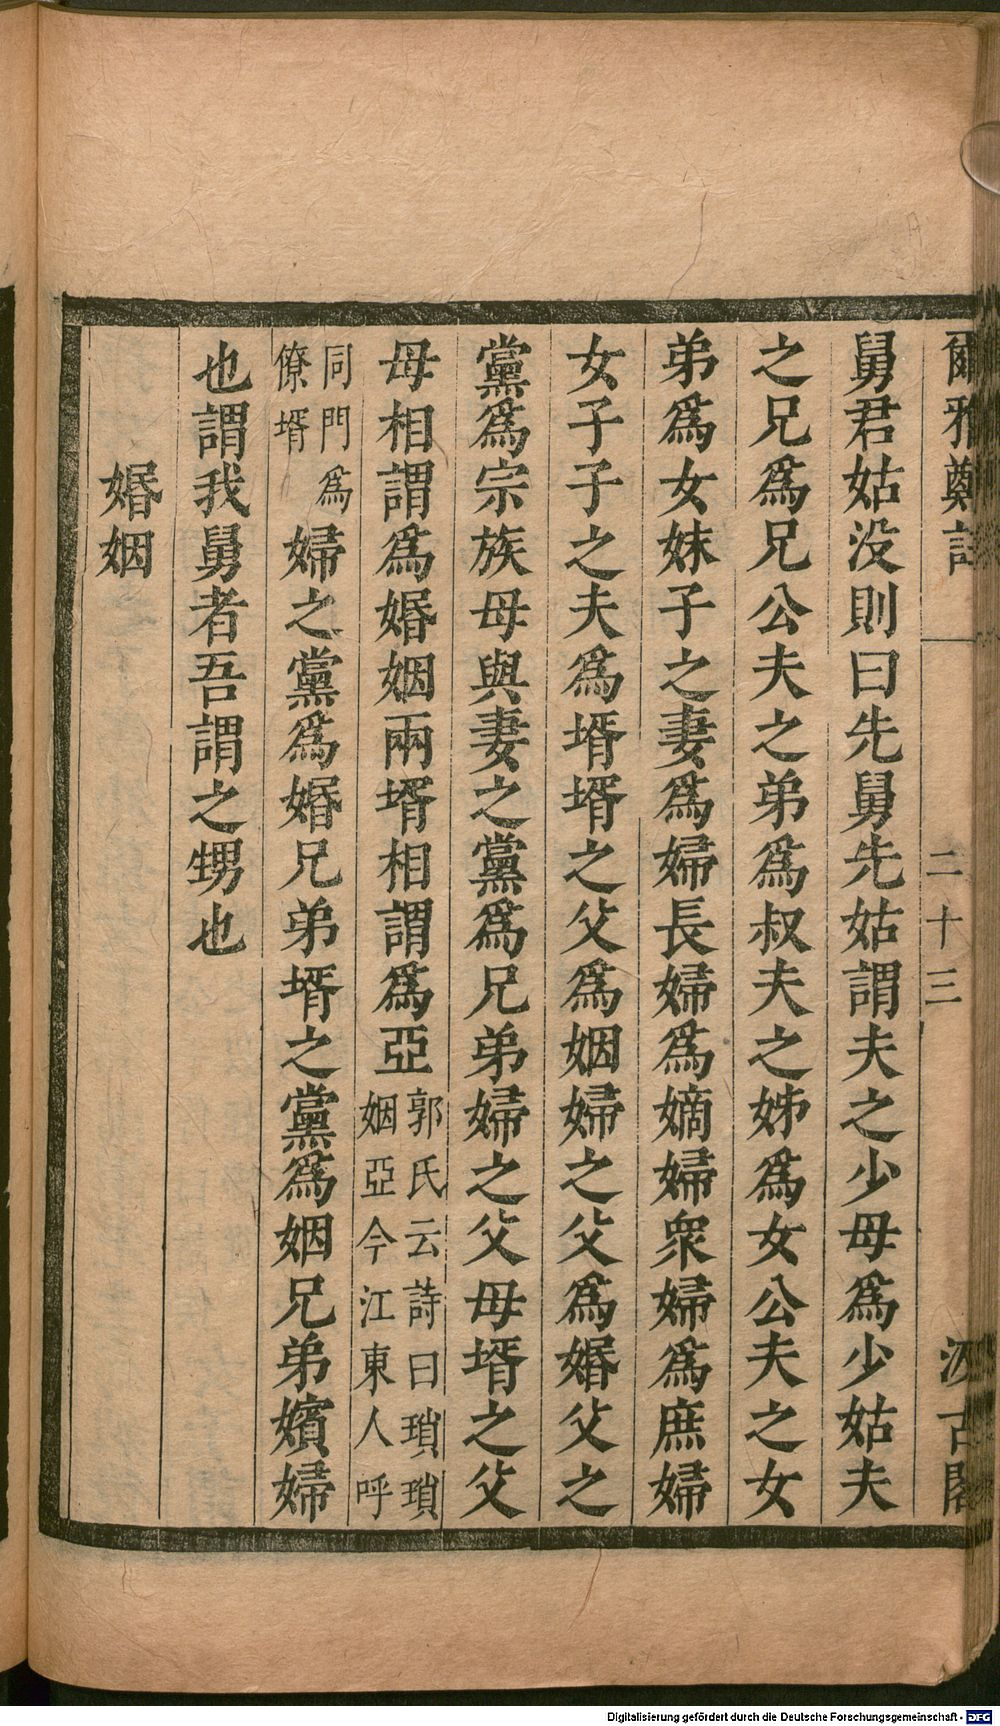 爾雅鄭註 二十三 汲古閣
舅君姑没則曰先舅先姑謂夫之少母爲少姑夫
之兄爲兄公夫之弟爲叔夫之姊爲女公夫之女
弟爲女妹子之妻爲婦長婦爲嫡婦衆婦爲庶婦
女子子之夫爲壻壻之父爲姻婦之父爲婚父之
黨爲宗族母與妻之黨爲兄弟婦之父母壻之父
母相謂爲婚姻兩壻相謂爲亞郭氏云詩曰瑣瑣
姻亞今江東人呼
同門爲
僚壻
婦之黨爲婚兄弟壻之黨爲姻兄弟嬪婦
也謂我舅者吾謂之甥也
婚姻
Digitalisierung gefördert durch die Deutsche Forschungsgemeinschaft - DFG